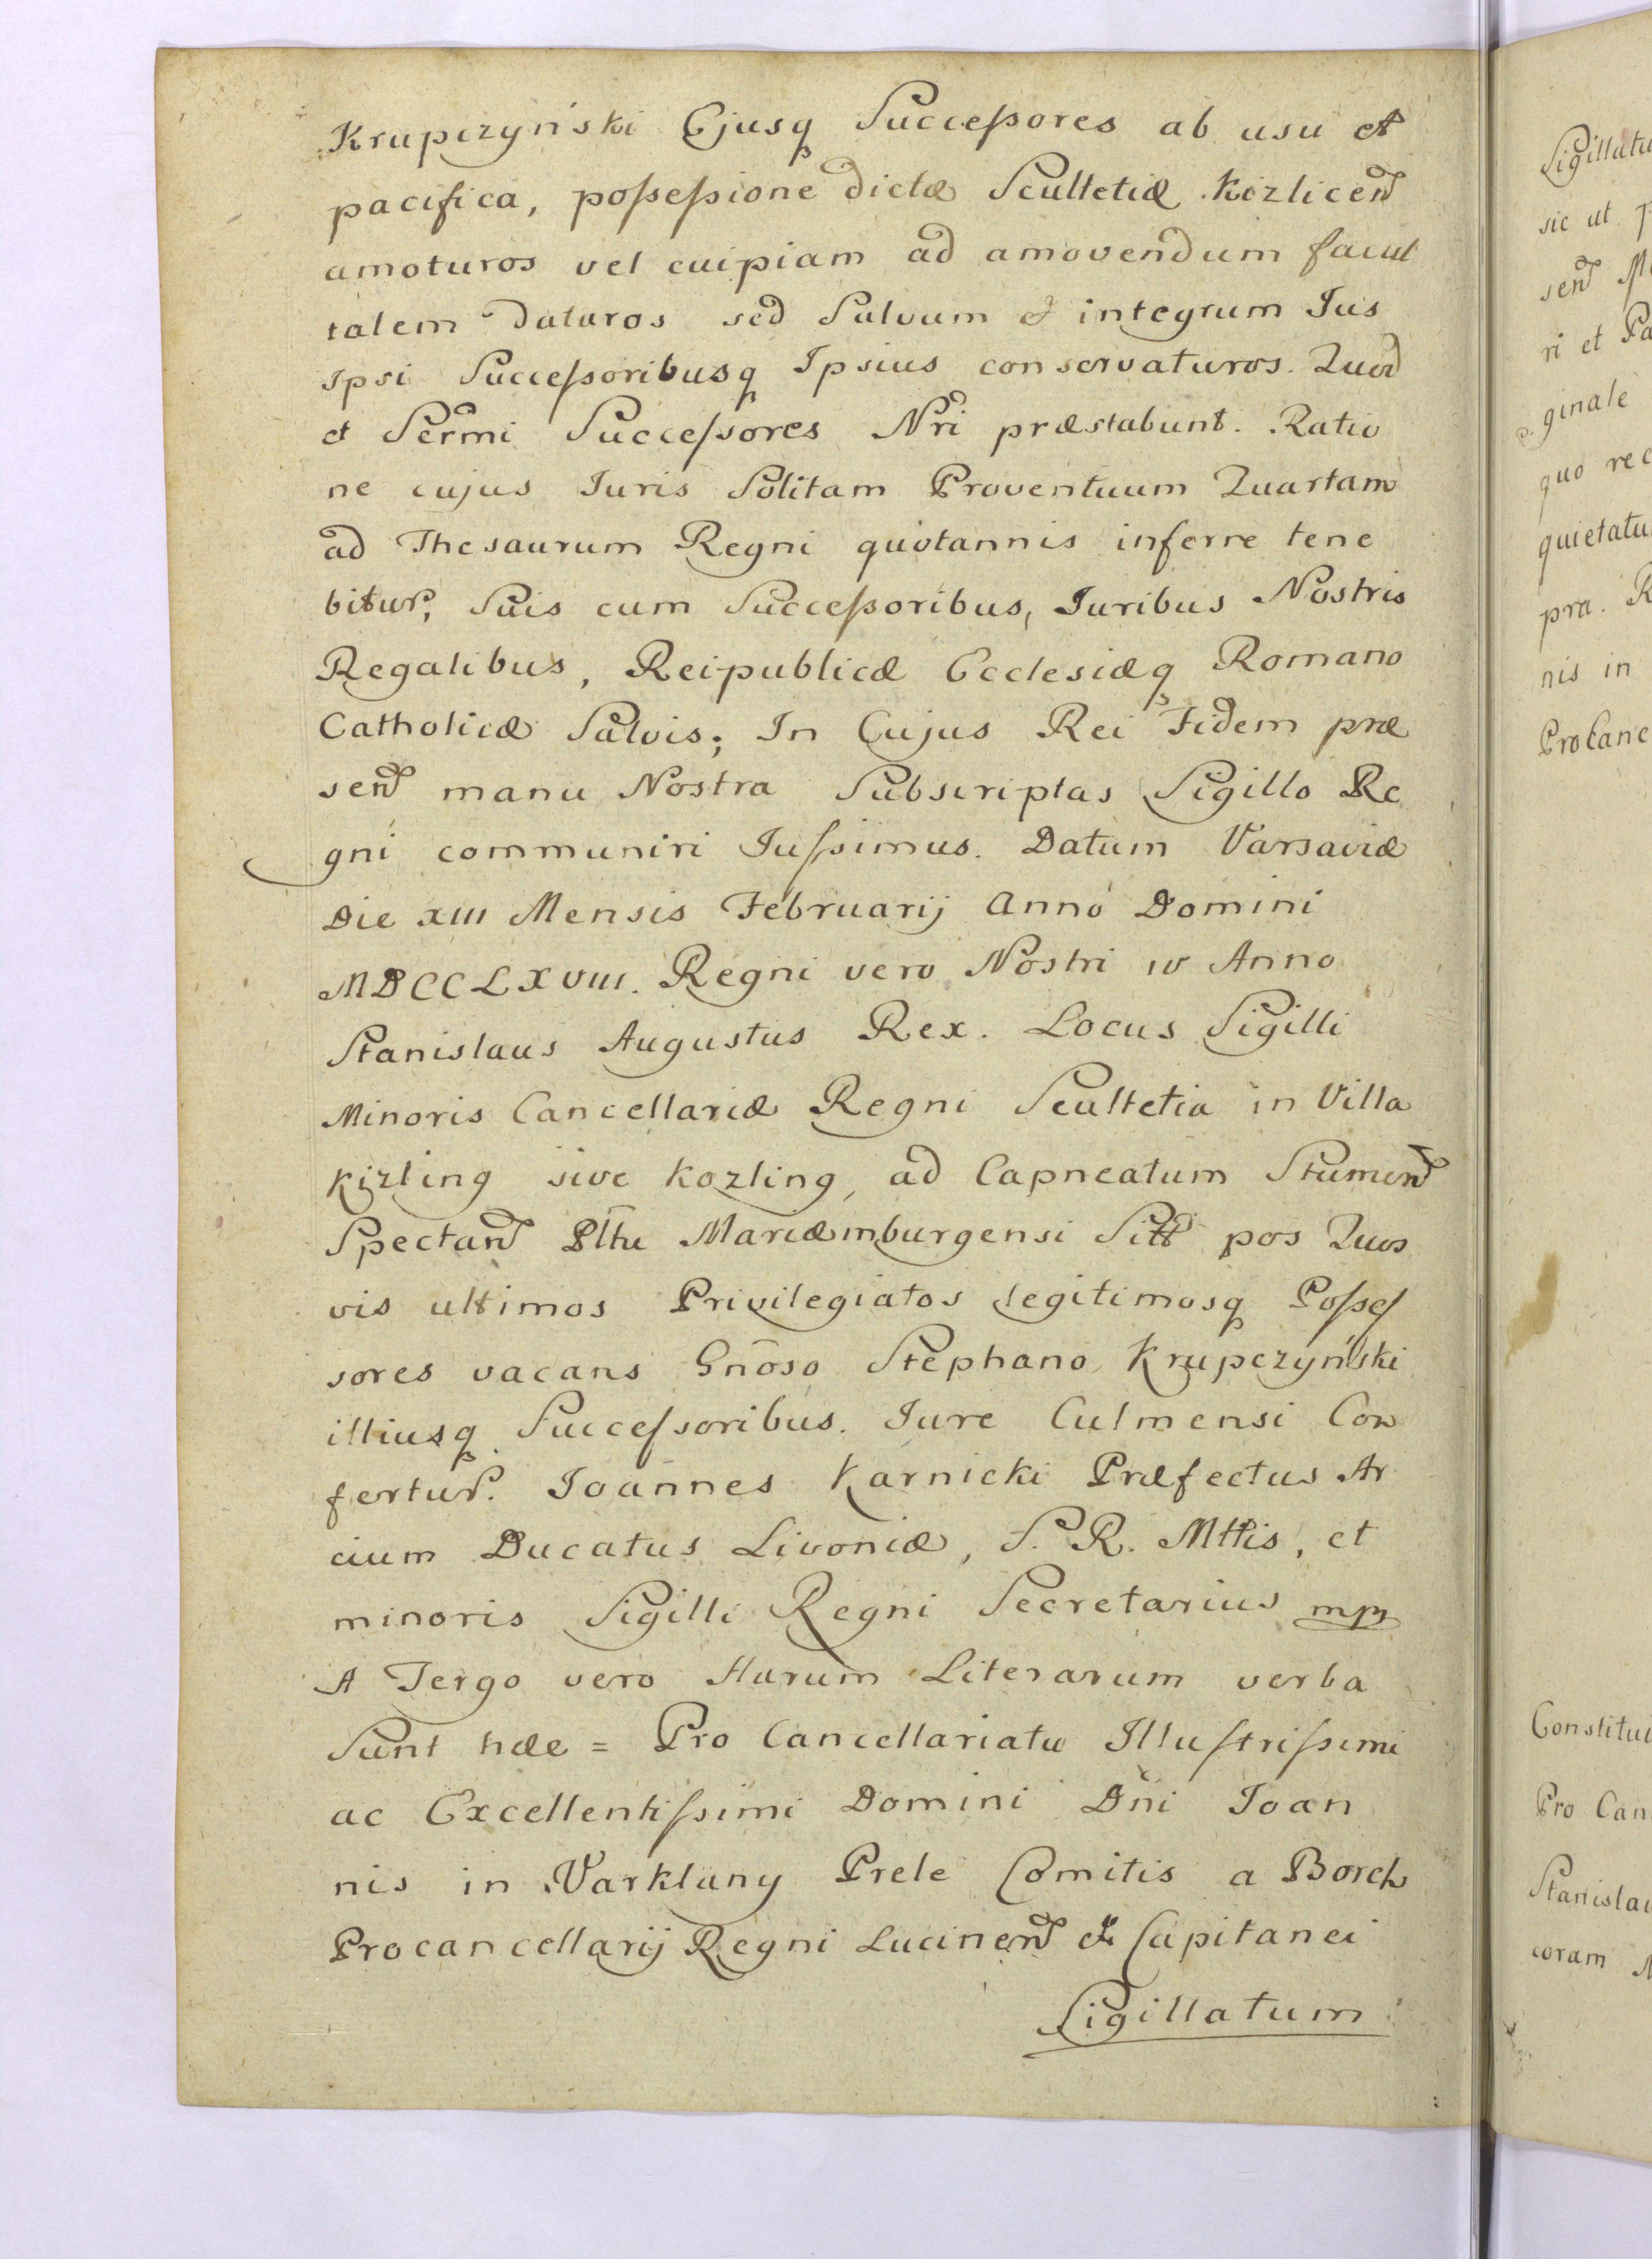 Krupczyński Ejusq Succeſsores ab usu et
pacifica, poſseſsione dictæ Scultetiæ Kozlicen
amoturos vel cuipiam ad amovendum facul
tatem daturos sed Salvum & integrum Ius
ipsi Succeſsoribusq Ipsius conservaturos. Quod
et Sermi Succeſsores Nri præstabunt. Ratio
ne cujus Iuris Solitam Proventuum Quartam
ad Thesaurum Regni quotannis inferre tene
bitur, Suis cum Succeſsoribus, Iuribus Nostris
Regalibus, Reipublicæ Ecclesiæq Romano
Catholicæ Salvis; In Cujus Rei Fidem præ
sen manu Nostra Subscriptas Sigillo Re
gni communiri Iuſsimus. Datum Varsaviæ
Die XIII Mensis Februarij Anno Domini
MDCCLXVIII. Regni vero Nostri IV Anno
Stanislaus Augustus Rex. Locus Sigilli
Minoris Cancellariæ Regni Scultetia in Villa
Kizling sive Kozling, ad Capneatum Stumen
Spectan Pltu Mariæmburgensi Sitt pos Quos
vis ultimos Privilegiatos legitimosq Poſseſ
sores vacans Gnoso Stephano Krupczyński
illiusq Succeſsoribus. Iure Culmensi Con
fertur. Ioannes Karnicki Præfectus Ar
cium Ducatus Livoniæ, S. R. Mttis, et
minoris Sigilli Regni Secretarius mp
A Tergo vero Harum Literarum verba
Sunt hæc = Pro Cancellariatu Illuſtriſsimi
ac Excellentiſsimi Domini Dni Ioan
nis in Varklany Prele Comitis a Borch
Procancellarij Regni Lucinen & Capitanei
Sigillatum
Sigillatu
sic ut
sen
ri et
ginale
quo rec
quietatu
pra.
nis in
ProCanc
Constitui
Pro Can
Stanislau
coram